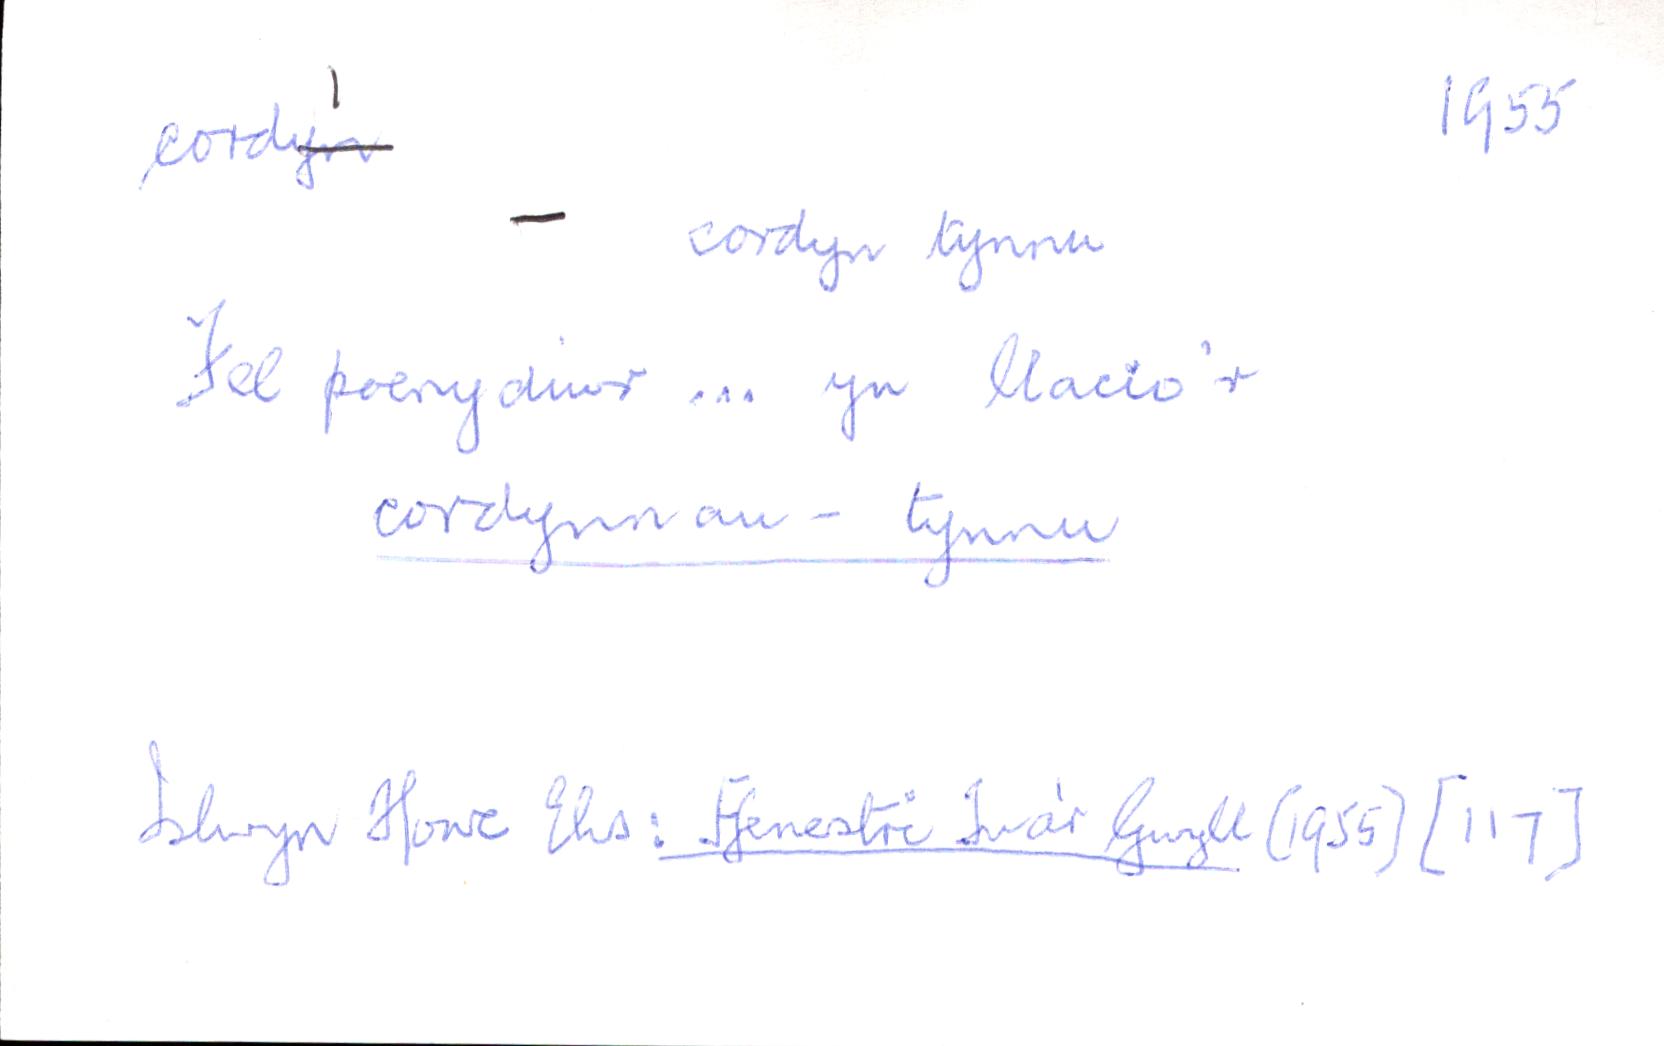 cordyn 1955
– cordyn tynnu
Fel poenydiwr ... yn llacio'r
cordynnau - tynnu
Islwyn Ffowc Elis: Ffenestri Tua'r Gwyll (1955) [117]